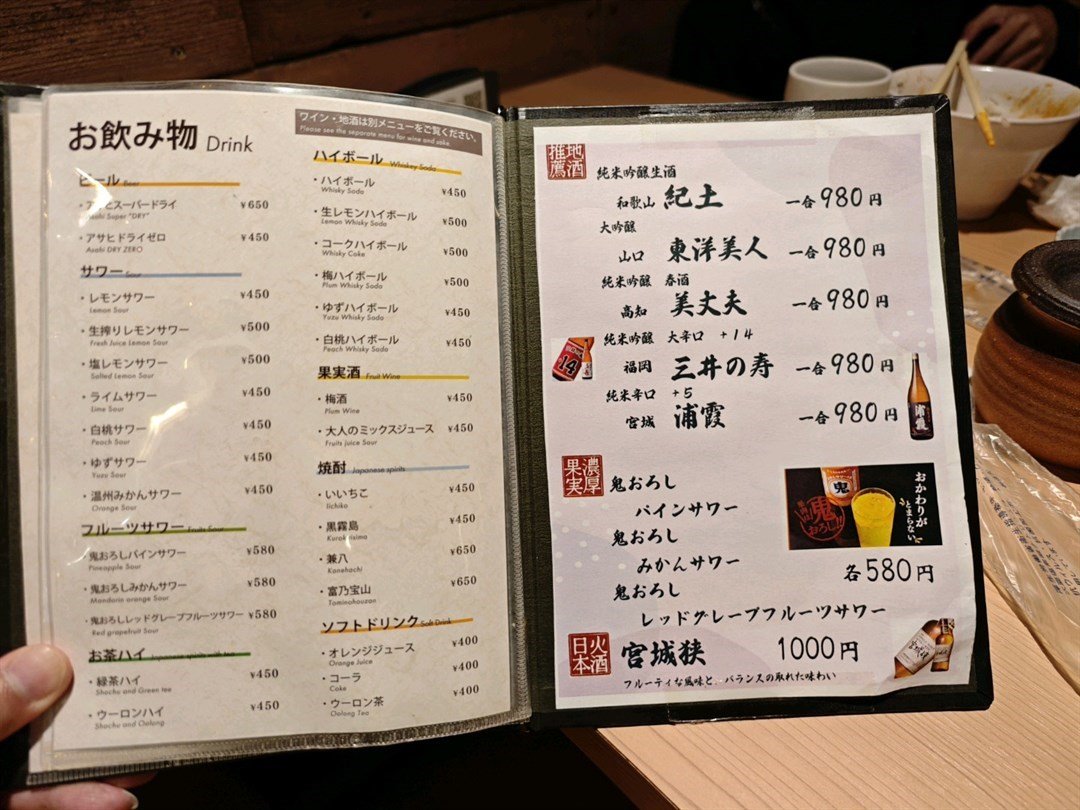 お飲み物 Drink
ワイン・地酒は別メニューをご覧ください。
Please see the separate menu for wine and sake.
ビール Beer
・アサヒスーパードライ ¥650
Asahi Super "DRY"
・アサヒドライゼロ ¥450
Asahi DRY ZERO
サワー Sour
・レモンサワー ¥450
Lemon Sour
・生搾りレモンサワー ¥500
Fresh Juice Lemon Sour
・塩レモンサワー ¥500
Salted Lemon Sour
・ライムサワー ¥450
Lime Sour
・白桃サワー ¥450
Peach Sour
・ゆずサワー ¥450
Yuzu Sour
・温州みかんサワー ¥450
Orange Sour
フルーツサワー Fruits Sour
・鬼おろしパインサワー ¥580
Pineapple Sour
・鬼おろしみかんサワー ¥580
Mandarin orange Sour
・鬼おろしレッドグレープフルーツサワー ¥580
Red grapefruit Sour
お茶ハイ Japanese spirits with tea
・緑茶ハイ ¥450
Shochu and Green tea
・ウーロンハイ ¥450
Shochu and Oolong
ハイボール Whiskey Soda
・ハイボール ¥450
Whisky Soda
・生レモンハイボール ¥500
Lemon Whisky Soda
・コークハイボール ¥500
Whisky Coke
・梅ハイボール ¥500
Plum Whisky Soda
・ゆずハイボール ¥450
Yuzu Whisky Soda
・白桃ハイボール ¥450
Peach Whisky Soda
果実酒 Fruit Wine
・梅酒 ¥450
Plum Wine
・大人のミックスジュース ¥450
Fruits juice Sour
焼酎 Japanese spirits
・いいちこ ¥450
Iichiko
・黒霧島 ¥450
Kurokirisima
・兼八 ¥650
Kanehachi
・富乃宝山 ¥650
Tominohouzan
ソフトドリンク Soft Drink
・オレンジジュース ¥400
Orange Juice
・コーラ ¥400
Coke
・ウーロン茶 ¥400
Oolong Tea
地酒推薦
純米吟醸生酒
和歌山 紀土 一合980円
大吟醸
山口 東洋美人 一合980円
純米吟醸 春酒
高知 美丈夫 一合980円
純米吟醸 大辛口 +14
福岡 三井の寿 一合980円
14
純米辛口 +5
宮城 浦霞 一合980円
浦霞
濃厚果実
鬼おろし
パインサワー
鬼おろし
みかんサワー
鬼おろし
レッドグレープフルーツサワー
各580円
鬼
鬼おろし!!
おかわりが
とまらない。
火酒日本
宮城狭 1000円
フルーティな風味と、バランスの取れた味わい
宮城峡